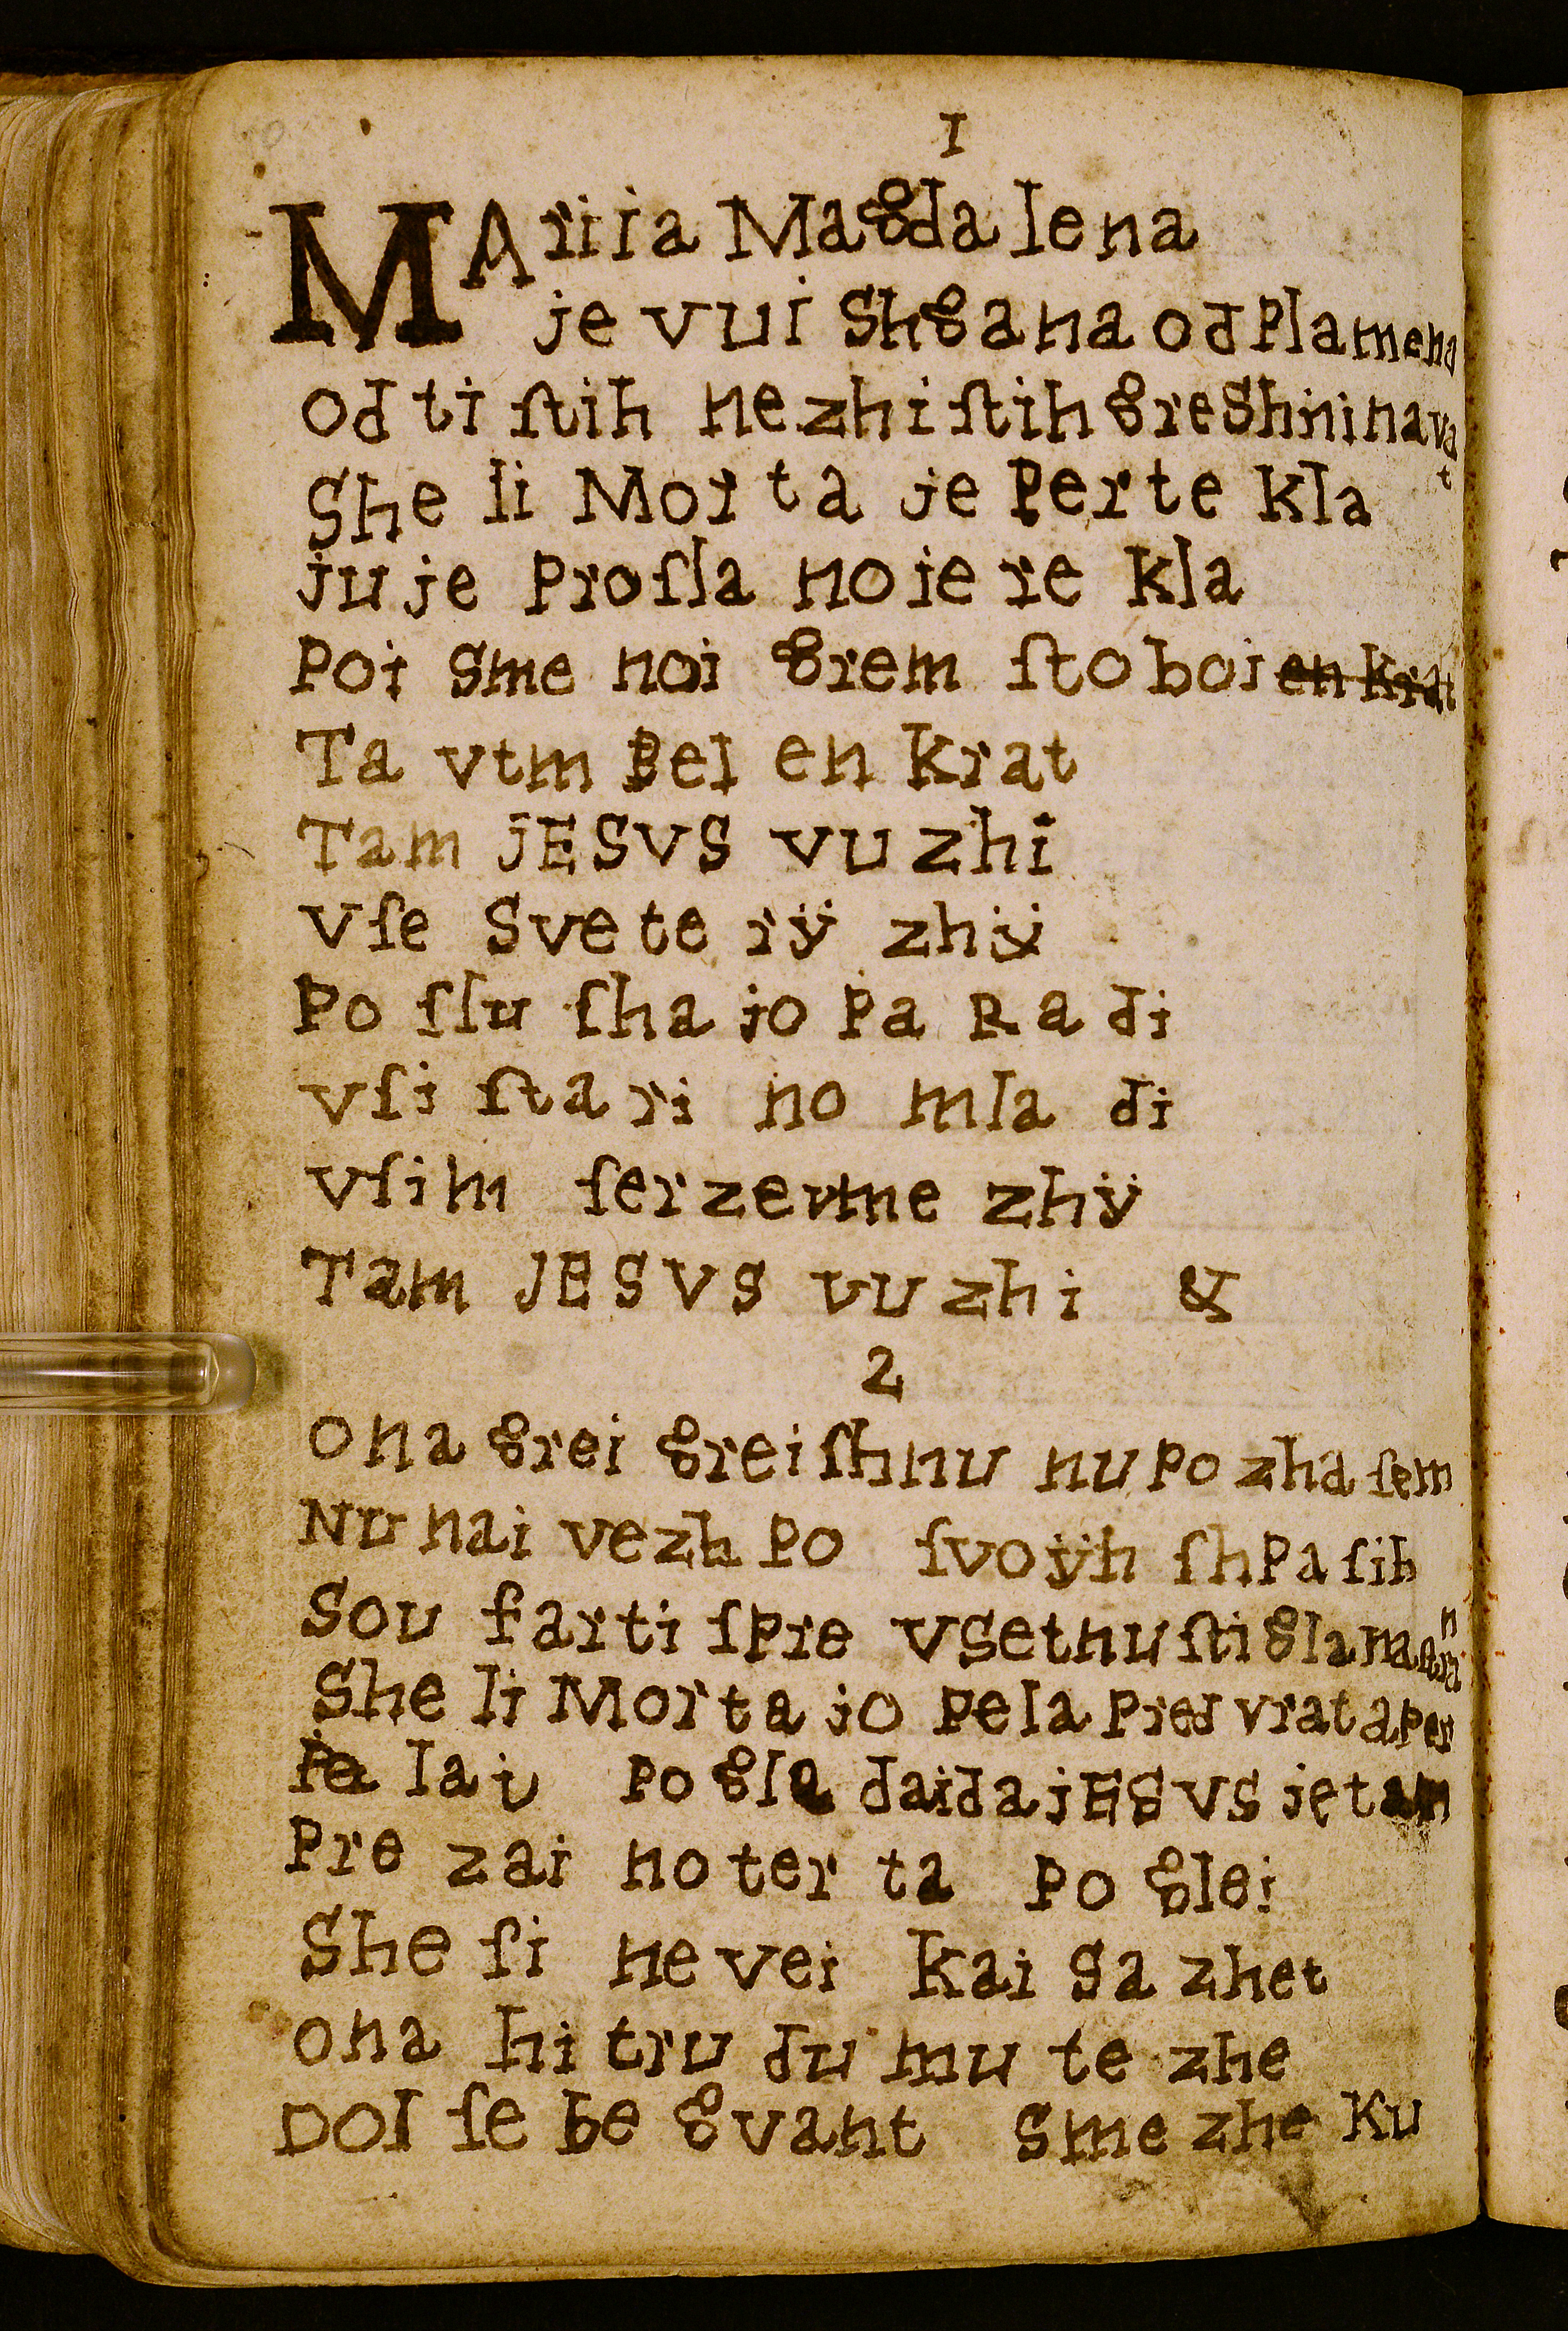 1
MAriia Magdalena
je vui Shgana od Plamena
od ti ſtih nezhiſtih greShninavat
She li Morta je Perte kla
juje Proſla noje re kla
Poi Sme noi grem ſtoboi en krat
Ta vtmPel en krat
Tam jESVS vuzhi
Vſe Svete rÿ zhÿ
Po ſlu ſhajo Pa Radi
vſi ſtari no mladi
vſim ſerzevme zhÿ
Tam JESVS vuzhi &
2
ona grei greiſhnu nu Po zhaſem
Nu nai vezh Po ſvoÿh ſhPaſih
Sou farti ſPre vSetnuſti glanan
She li Morta jo Pela Pred vrata Per
Pelai Pogla daida jESVS je tam
Pre zai noter ta Poglei
She ſi ne vei kai Sazhet
ona hitru dumu te zhe
Dol ſe be gvant Sme zhe ku